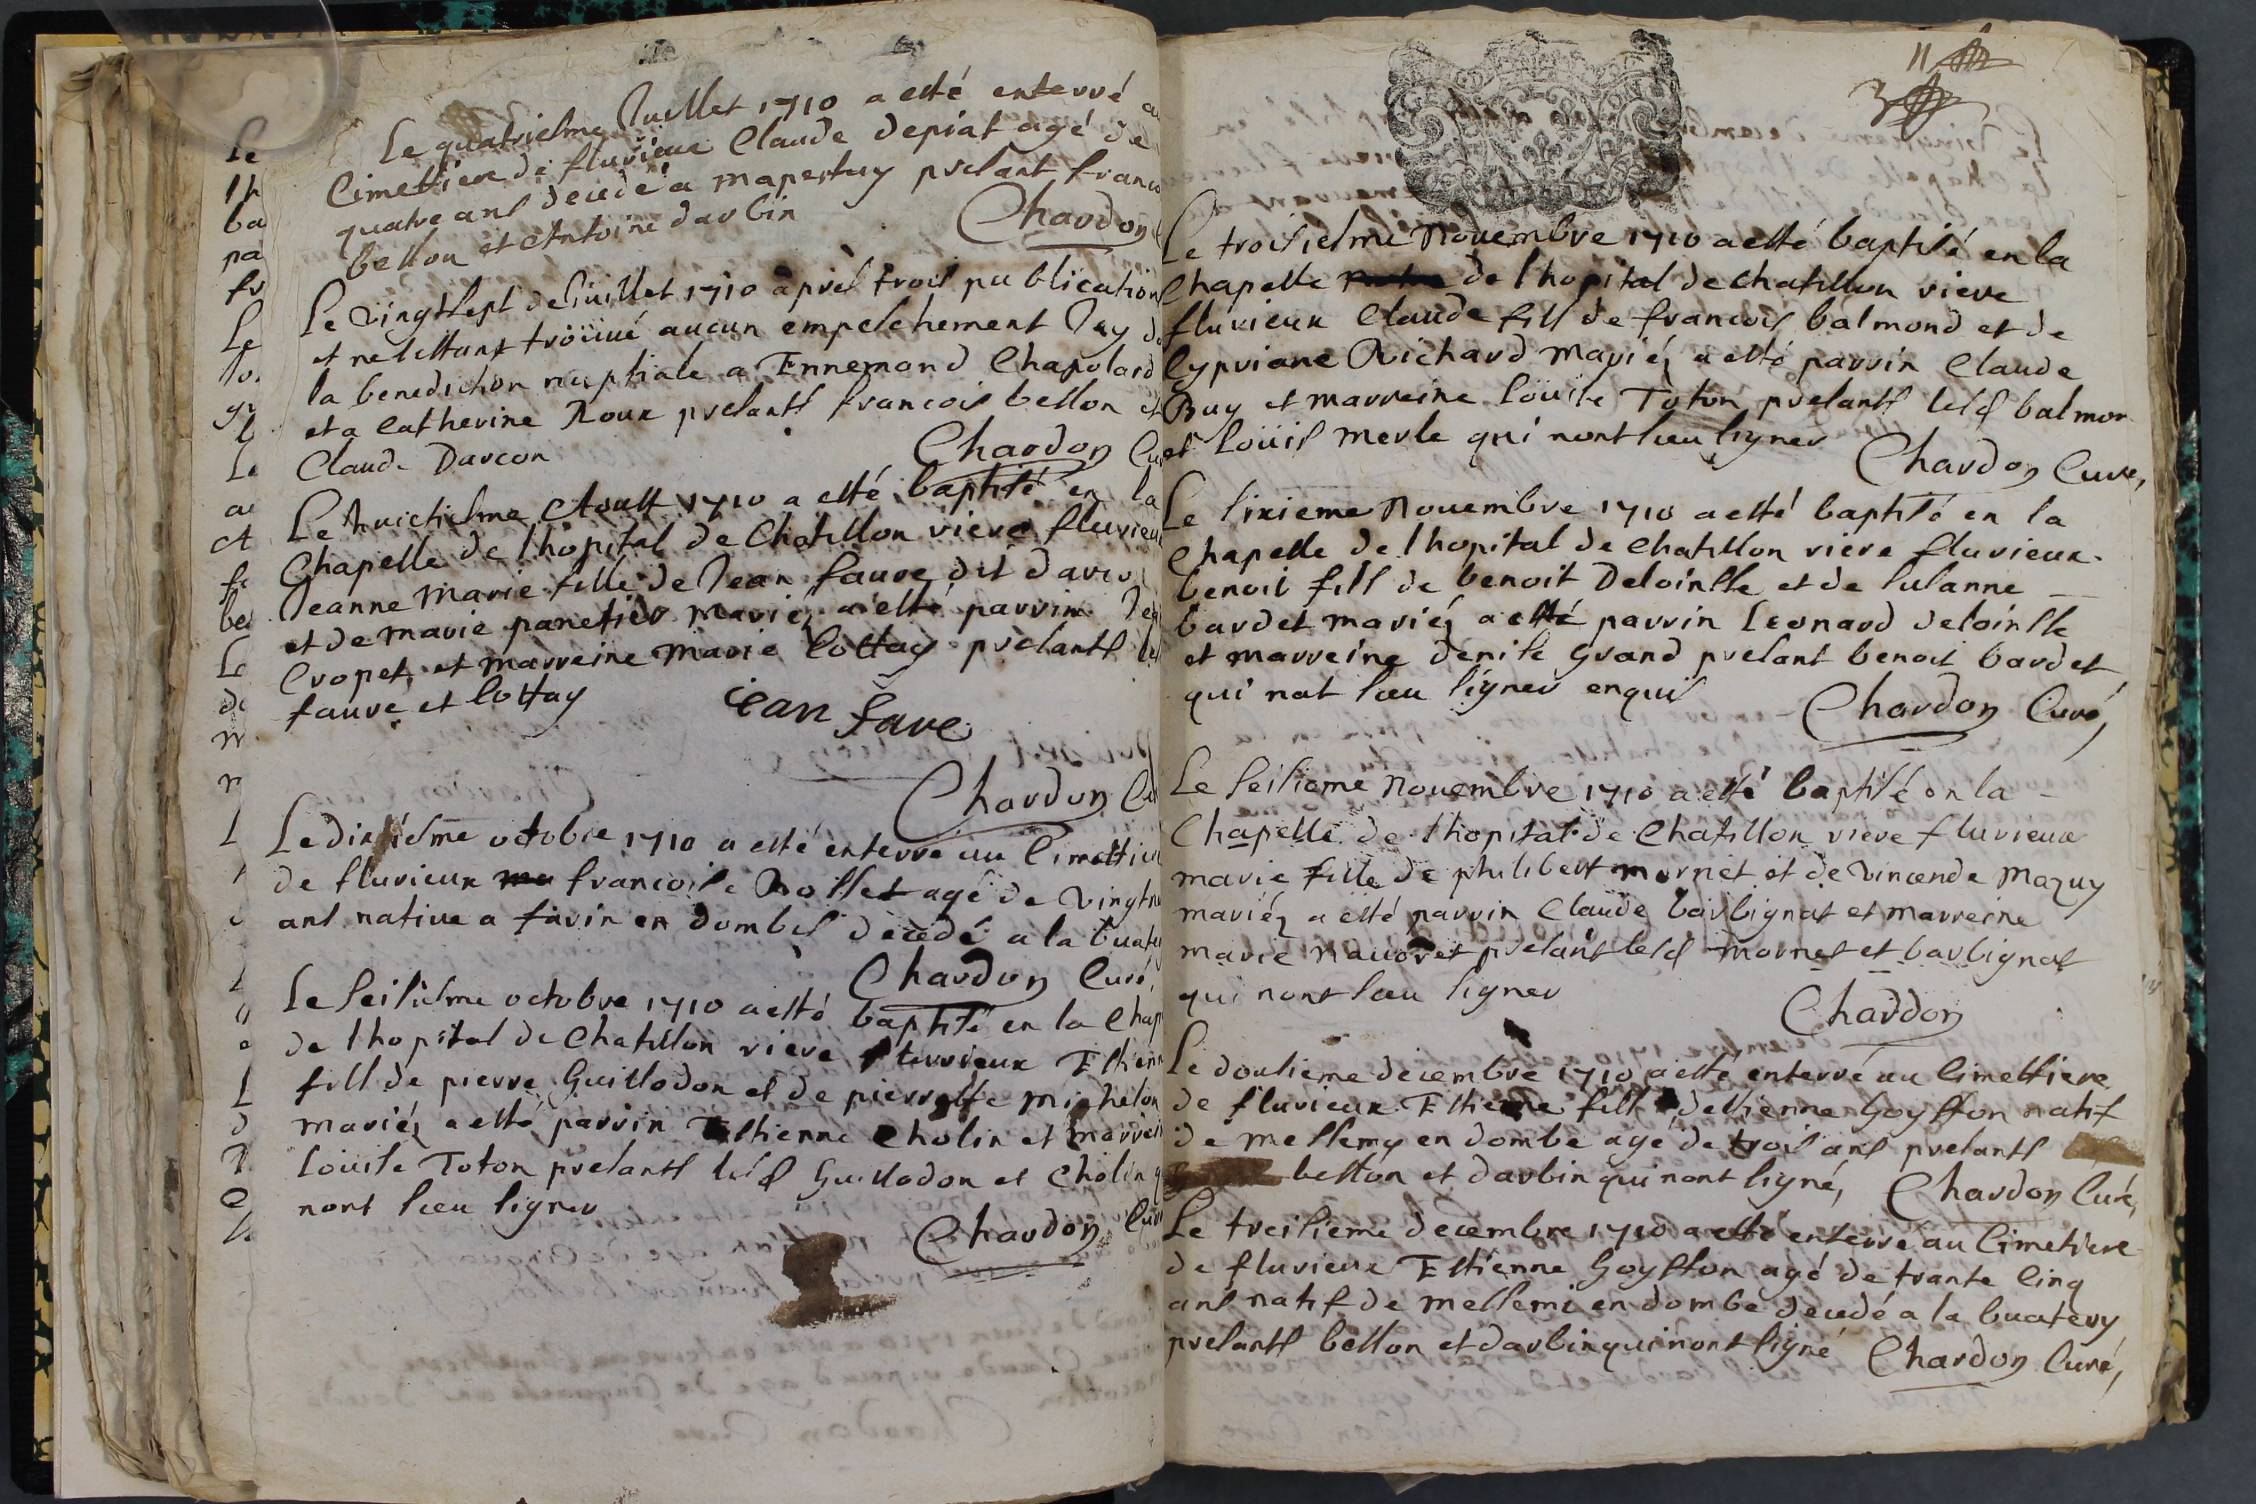 Le quatriesme Juillet 1710 a esté enterré au
Cimettiere de fluvieux Claude depiat agé de
quatre ans decedé a mapertuy presant franco
bellon et Antoine darbin Chardon
Le vingtsept de Juillet 1710 apres trois publication
et ne sestant trouué aucun empeschement Jay d
la benediction nuptiale a Ennemond Chapolard
et a Catherine Roux presants francois bellon et
Claude Darcon Chardon Cu
Le huictiesme Aoust 1710 a esté baptisé en la
Chapelle de lhopital de Chatillon viere fluvieu
Jeanne Marie fille de Jean faure dit
et de marie panetier mariéz a esté parrin Jea
Cropet et marreine marie Cottay presants les
faure et Cottay
iean fave
Chardon Cu
Le dixiesme octobre 1710 a esté enterré au Cimettier
de fluvieux francoise Rosset agé de vingt
ans native a favin en dombes decedé a la buate
Chardon Curé,
Le seisiesme octobre 1710 a esté baptisé en la Chap
de lhopital de Chatillon viere fluvieux Estienn
fils de pierre Guillodon et de pierrotte michelon
mariéz a esté parrin Estienne Cholin et marrein
Louise Toton presants lesd Guillodon et Cholin q
nont sceu signer
Chardon Curé
11
3
Le troisiesme Novembre 1710 a esté baptisé en la
Chapelle de lhopital de chatillon viere
fluvieux Claude fils de francois balmond et de
Cypriane Richard mariéz a esté parrin Claude
Buy et marreine Louise Toton presants lesd balmon
et Loüis merle qui nont sceu signer
Chardon Curé,
Le sixieme Nouembre 1710 a esté baptisé en la
Chapelle de lhopital de chatillon viere fluvieux
benoit fils de benoit Deloinste et de susanne
bardet mariéz a esté parrin Leonard deloinste
et marreine denise Grand presant benoit bardet
qui nat sceu signer enquis
Chardon Curé,
Le seisieme Nouembre 1710 a esté baptisé en la
Chapelle de lhopital de Chatillon viere fluvieux
marie fille de philibert mornet et de vincende Mazuy
mariéz a esté parrin Claude barbignat et marreine
marie presant lesd mornet et barbignat
qui nont sceu signer
Chardon
Le dousieme decembre 1710 a esté enterré au Cimettiere
de fluvieux Estienne fils destienne Goyffon natif
de messemy en dombe agé de trois ans presants
bellon et darbin qui nont signé, Chardon Curé,
Le treisieme decembre 1710 a esté enterré au Cimetiere
de fluvieux Estienne Goyffon agé de trante cinq
ans natif de messemi en dombe decedé a la buatery
presants bellon et darbin qui nont signé Chardon Curé,